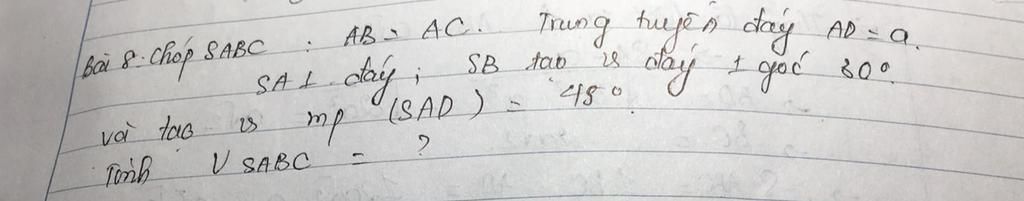 Bài 8: Chóp SABC : AB = AC. Trung tuyến đáy AD = a.
SA ⊥ đáy ; SB tạo vs đáy 1 góc 30°.
và tạo vs mp (SAD) = 45°.
Tính V SABC = ?